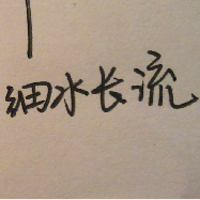 细水长流